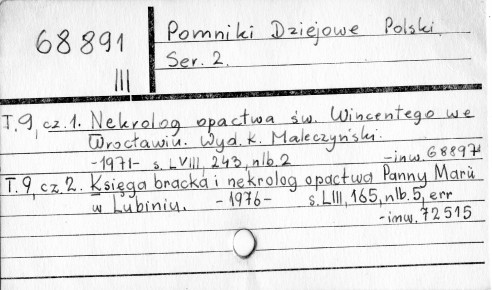 68891
III
Pomniki Dziejowe Polski.
Ser. 2.
T.9, cz.1. Nekrolog opactwa św. Wincentego we
Wrocławiu. Wyd. K. Maleczyński.
-1971- s. LVIII, 243, nlb. 2 -inw. 68897
T.9, cz.2. Księga bracka i nekrolog opactwa Panny Marii
w Lubiniu. -1976- s. LIII, 165, nlb. 5, err
-inw. 72515